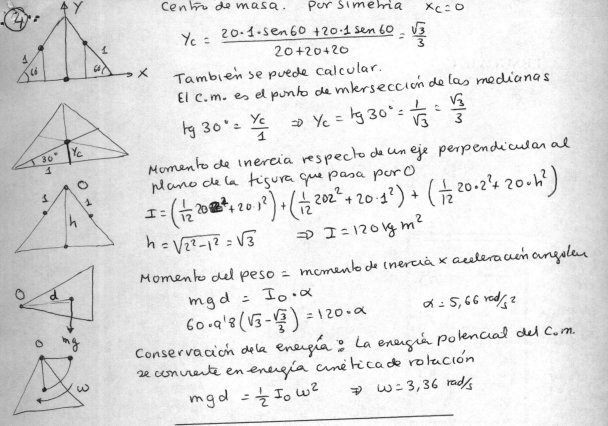 2.
Y
1
1
60
60
X
Centro de masa. Por simetria x_c = 0
Y_c = (20·1·sen60 + 20·1 sen60) / (20+20+20) = √3/3
Tambien se puede calcular.
El c.m. es el punto de intersección de las medianas
30°
Y_c
1
tg 30° = Y_c/1 ⇒ Y_c = tg 30° = 1/√3 = √3/3
Momento de inercia respecto de un eje perpendicular al
plano de la figura que pasa por O
O
1
1
h
I = (1/12 20 2² + 20·1²) + (1/12 20 2² + 20·1²) + (1/12 20·2² + 20·h²)
h = √(2²-1²) = √3 ⇒ I = 120 kg m²
Momento del peso = momento de inercia x aceleración angular
O
d
mg
mgd = I_O·α
60·9'8 (√3 - √3/3) = 120·α α = 5,66 rad/s²
Conservación de la energía: La energía potencial del C.m.
se convierte en energía cinética de rotación
O
ω
mgd = 1/2 I_O ω² ⇒ ω = 3,36 rad/s